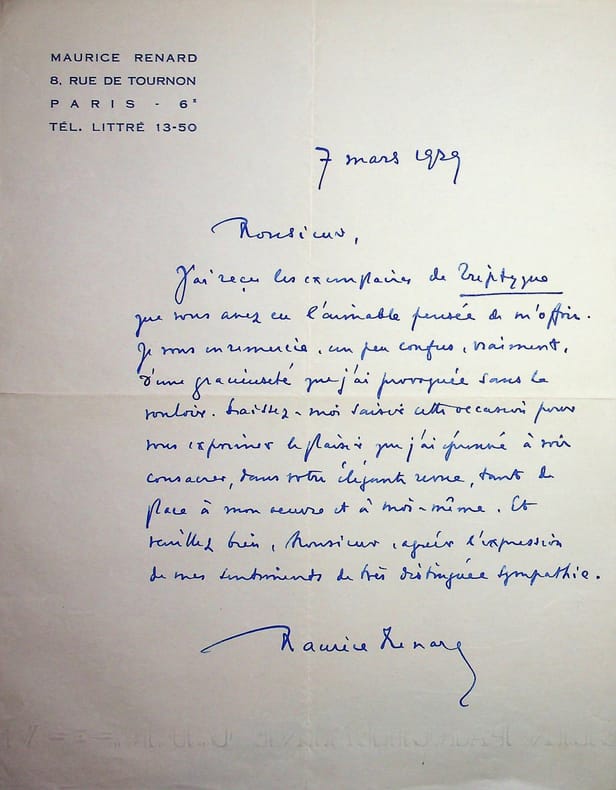 MAURICE RENARD
8, RUE DE TOURNON
PARIS - 6ᴱ
TÉL. LITTRÉ 13-50
7 mars 1929
Monsieur,
J'ai reçu les exemplaires de Triptyque
que vous avez eu l'aimable pensée de m'offrir.
Je vous en remercie, un peu confus, vraiment,
d'une gracieuseté que j'ai provoquée sans le
vouloir. Laissez-moi saisir cette occasion pour
vous exprimer le plaisir que j'ai éprouvé à voir
consacrer, dans votre élégante revue, tant de
place à mon œuvre et à moi-même. Et
veuillez bien, Monsieur, agréer l'expression
de mes sentiments de très distinguée sympathie.
Maurice Renard